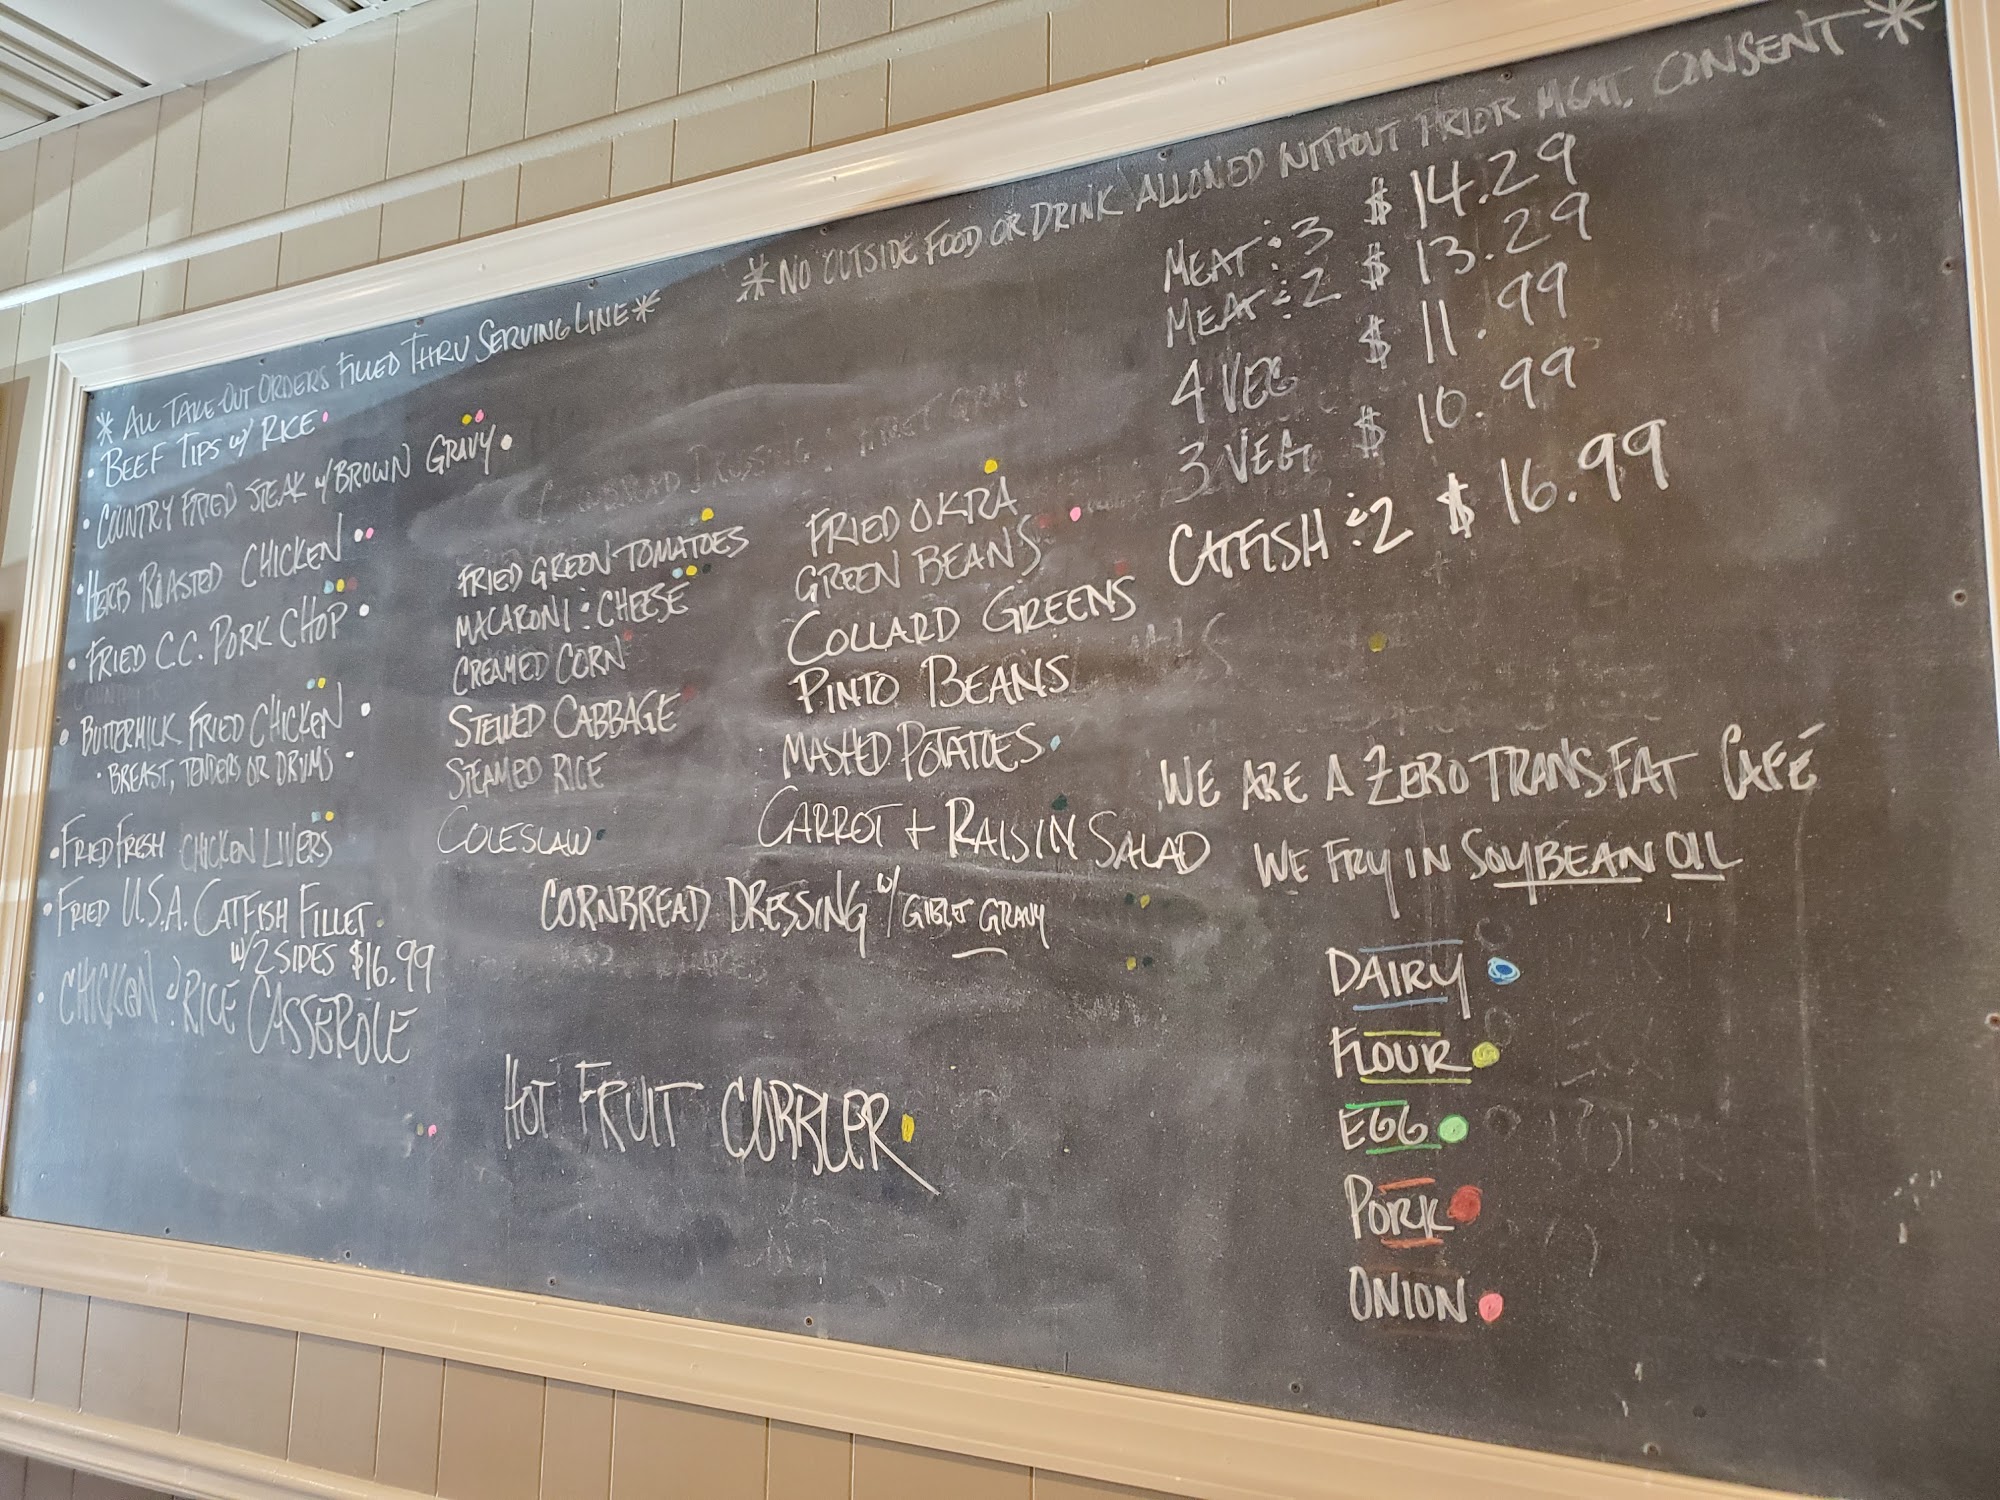 * ALL TAKE-OUT ORDERS FILLED THRU SERVING LINE *
* NO OUTSIDE FOOD OR DRINK ALLOWED WITHOUT PRIOR MGMT. CONSENT *
• BEEF TIPS W/ RICE
• COUNTRY FRIED STEAK W/ BROWN GRAVY •
• HERB ROASTED CHICKEN
• FRIED C.C. PORK CHOP •
• BUTTERMILK FRIED CHICKEN •
• BREAST, TENDERS OR DRUMS •
• FRIED FRESH CHICKEN LIVERS
• FRIED U.S.A. CATFISH FILLET
W/ 2 SIDES $16.99
• CHICKEN & RICE CASSEROLE
FRIED GREEN TOMATOES
MACARONI & CHEESE
CREAMED CORN
STEWED CABBAGE
STEAMED RICE
COLESLAW
FRIED OKRA
GREEN BEANS
COLLARD GREENS
PINTO BEANS
MASHED POTATOES
CARROT + RAISIN SALAD
CORNBREAD DRESSING W/ GIBLET GRAVY
HOT FRUIT COBBLER
MEAT & 3 $14.29
MEAT & 2 $13.29
4 VEG $11.99
3 VEG $10.99
CATFISH & 2 $16.99
WE ARE A ZERO TRANS FAT CAFÉ
WE FRY IN SOYBEAN OIL
DAIRY
FLOUR
EGG
PORK
ONION